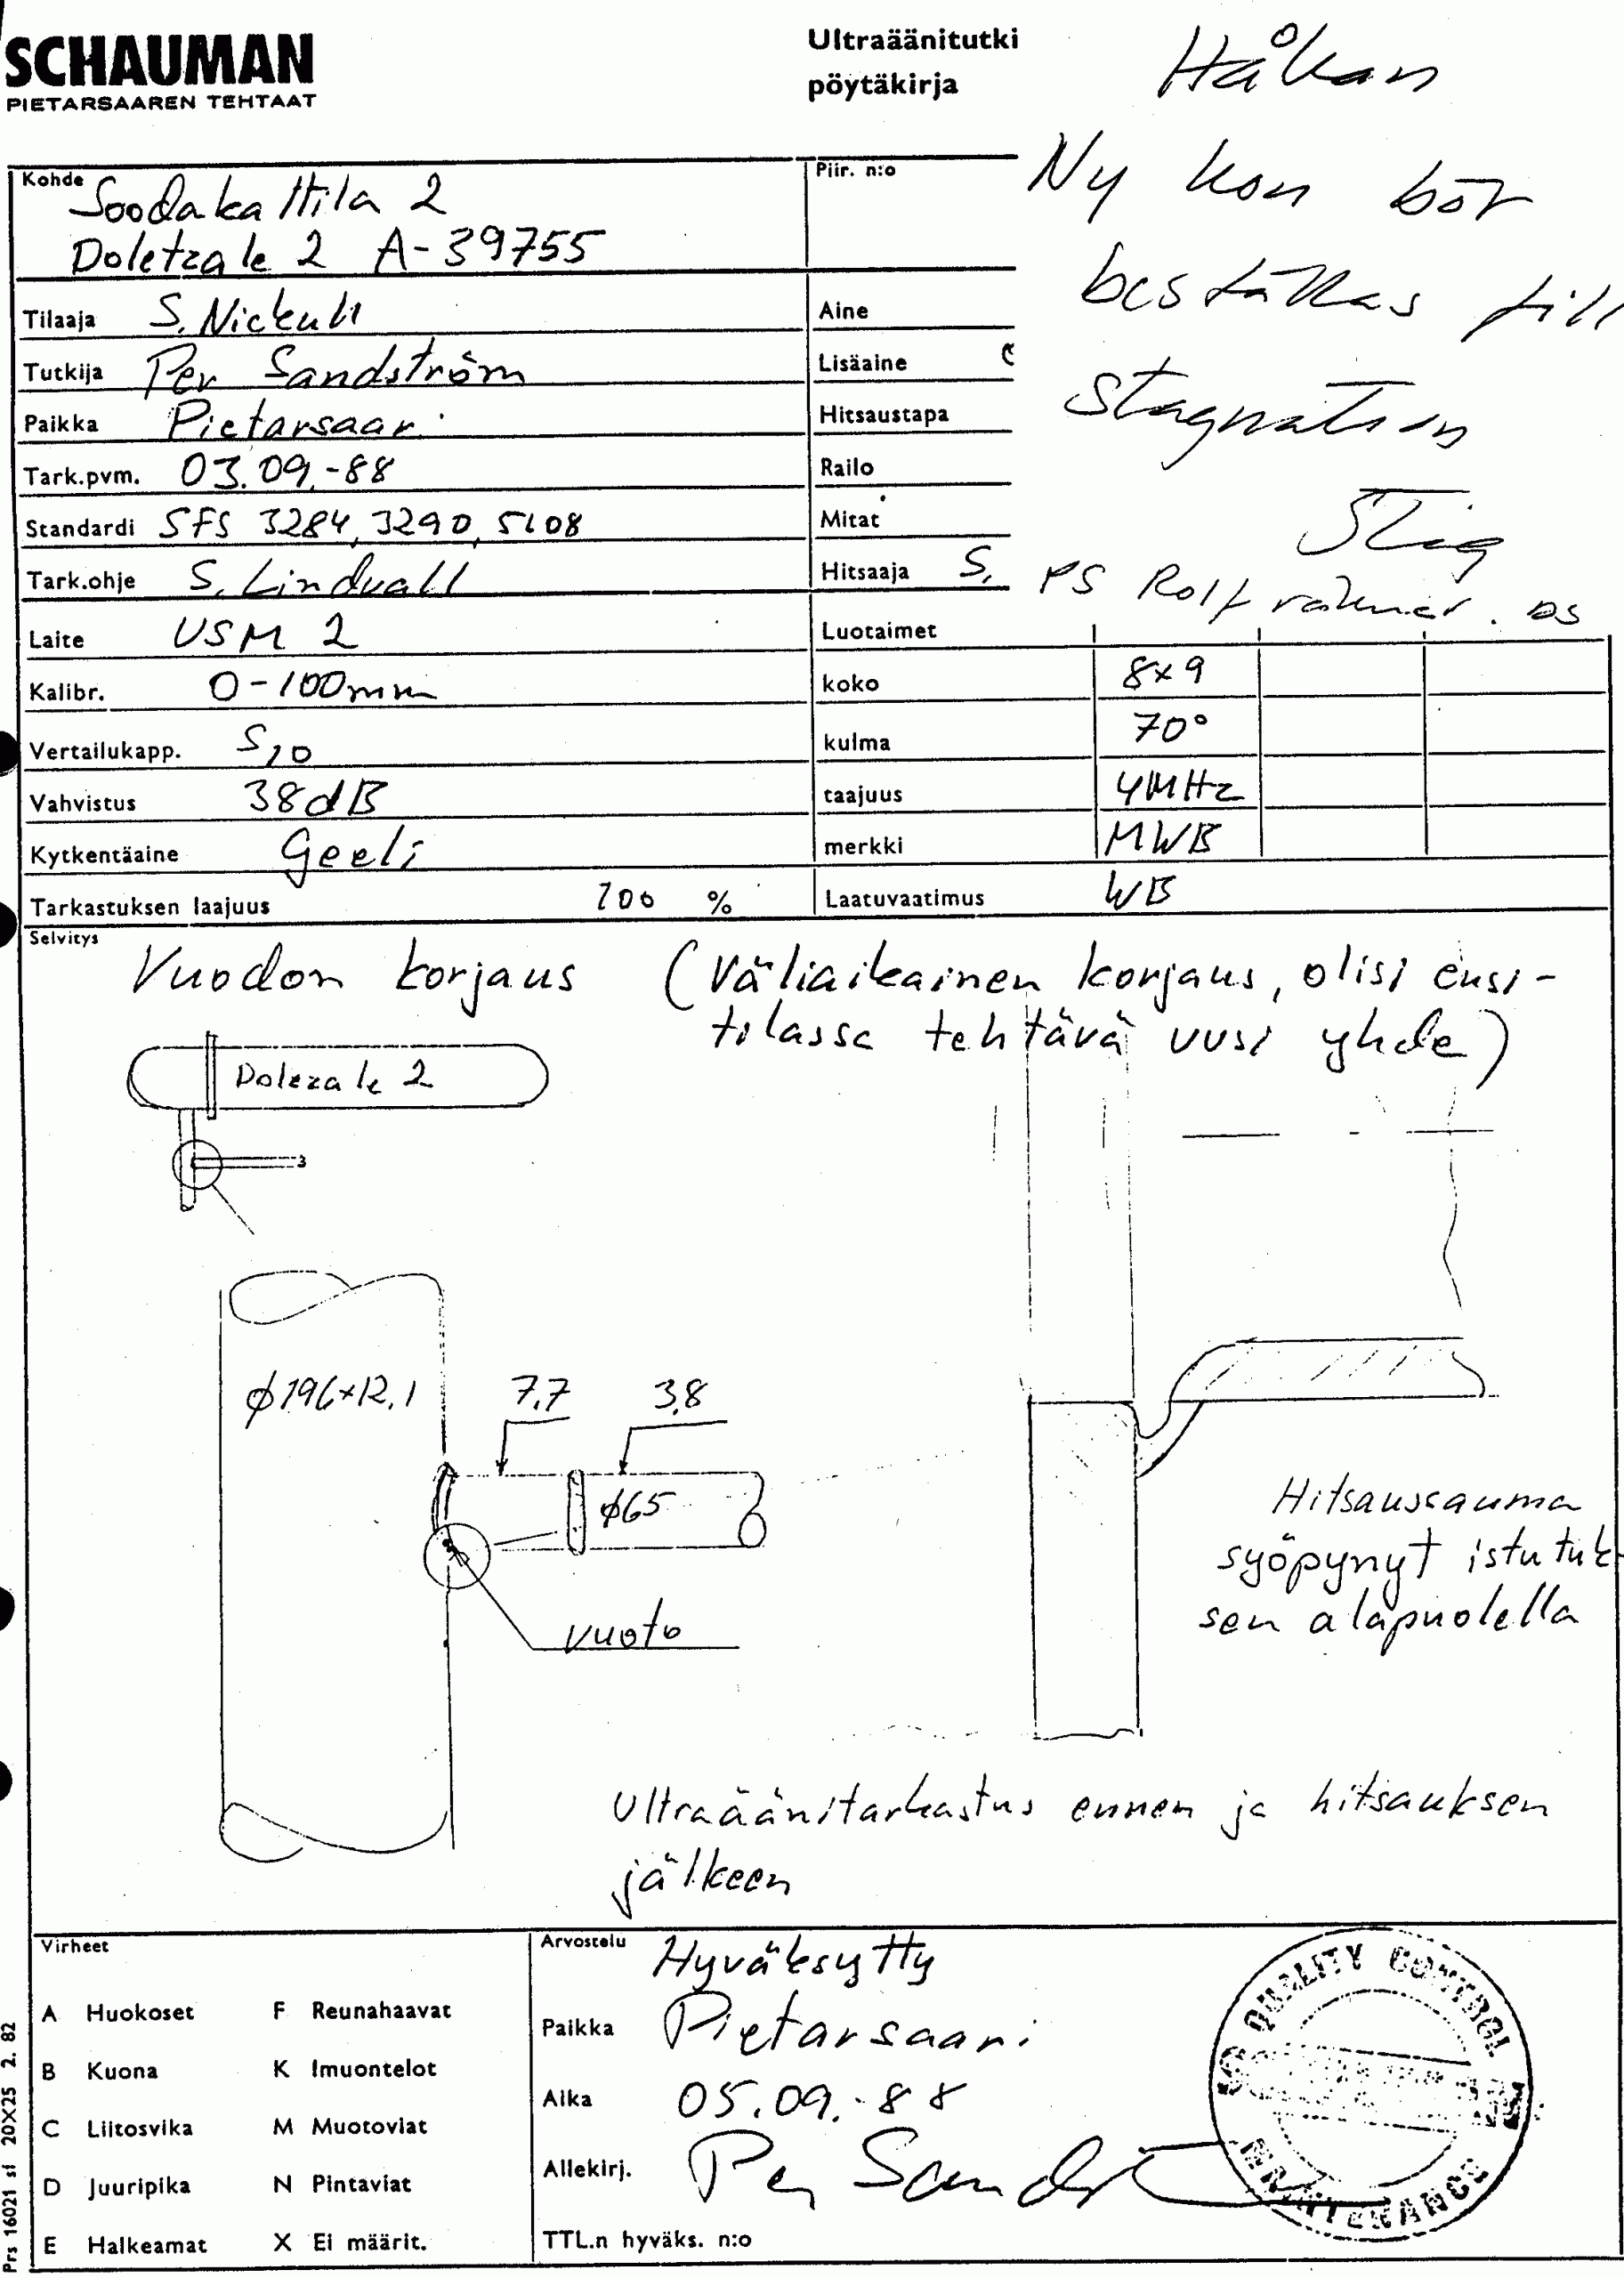 SCHAUMAN
PIETARSAAREN TEHTAAT
Ultraäänitutki
pöytäkirja
Håkan
Ny kon bör
beställas till
stagnation
Stig
PS Rolf räknar. DS
Kohde Soodakattila 2
Doletzale 2 A-39755
Piir. n:o
Tilaaja S. Nickull
Aine
Tutkija Per Sandström
Lisäaine
Paikka Pietarsaari
Hitsaustapa
Tark.pvm. 03.09.-88
Railo
Standardi SFS 3284, 3290, 5108
Mitat
Tark.ohje S. Lindvall
Hitsaaja S.
Laite USM 2
Luotaimet
Kalibr. 0-100mm
koko 8x9
Vertailukapp. S10
kulma 70°
Vahvistus 38dB
taajuus 4MHz
Kytkentäaine Geeli
merkki MWB
Tarkastuksen laajuus 100 %
Laatuvaatimus WB
Selvitys
Vuodon korjaus (Väliaikainen korjaus, olisi ensi-
tilassa tehtävä uusi yhde)
Doletzale 2
ϕ196x12.1
7,7
3,8
ϕ65
vuoto
Hitsaussauma
syöpynyt istutuk
sen alapuolella
Ultraäänitarkastus ennen ja hitsauksen
jälkeen
Virheet
A Huokoset F Reunahaavat
B Kuona K Imuontelot
C Liitosvika M Muotoviat
D Juuripika N Pintaviat
E Halkeamat X Ei määrit.
Arvostelu Hyväksytty
Paikka Pietarsaari
Aika 05.09.-88
Allekirj. Per Sandst
TTL.n hyväks. n:o
QUALITY CONTROL
MAINTENANCE
Prs 16021 si 20X25 2. 82